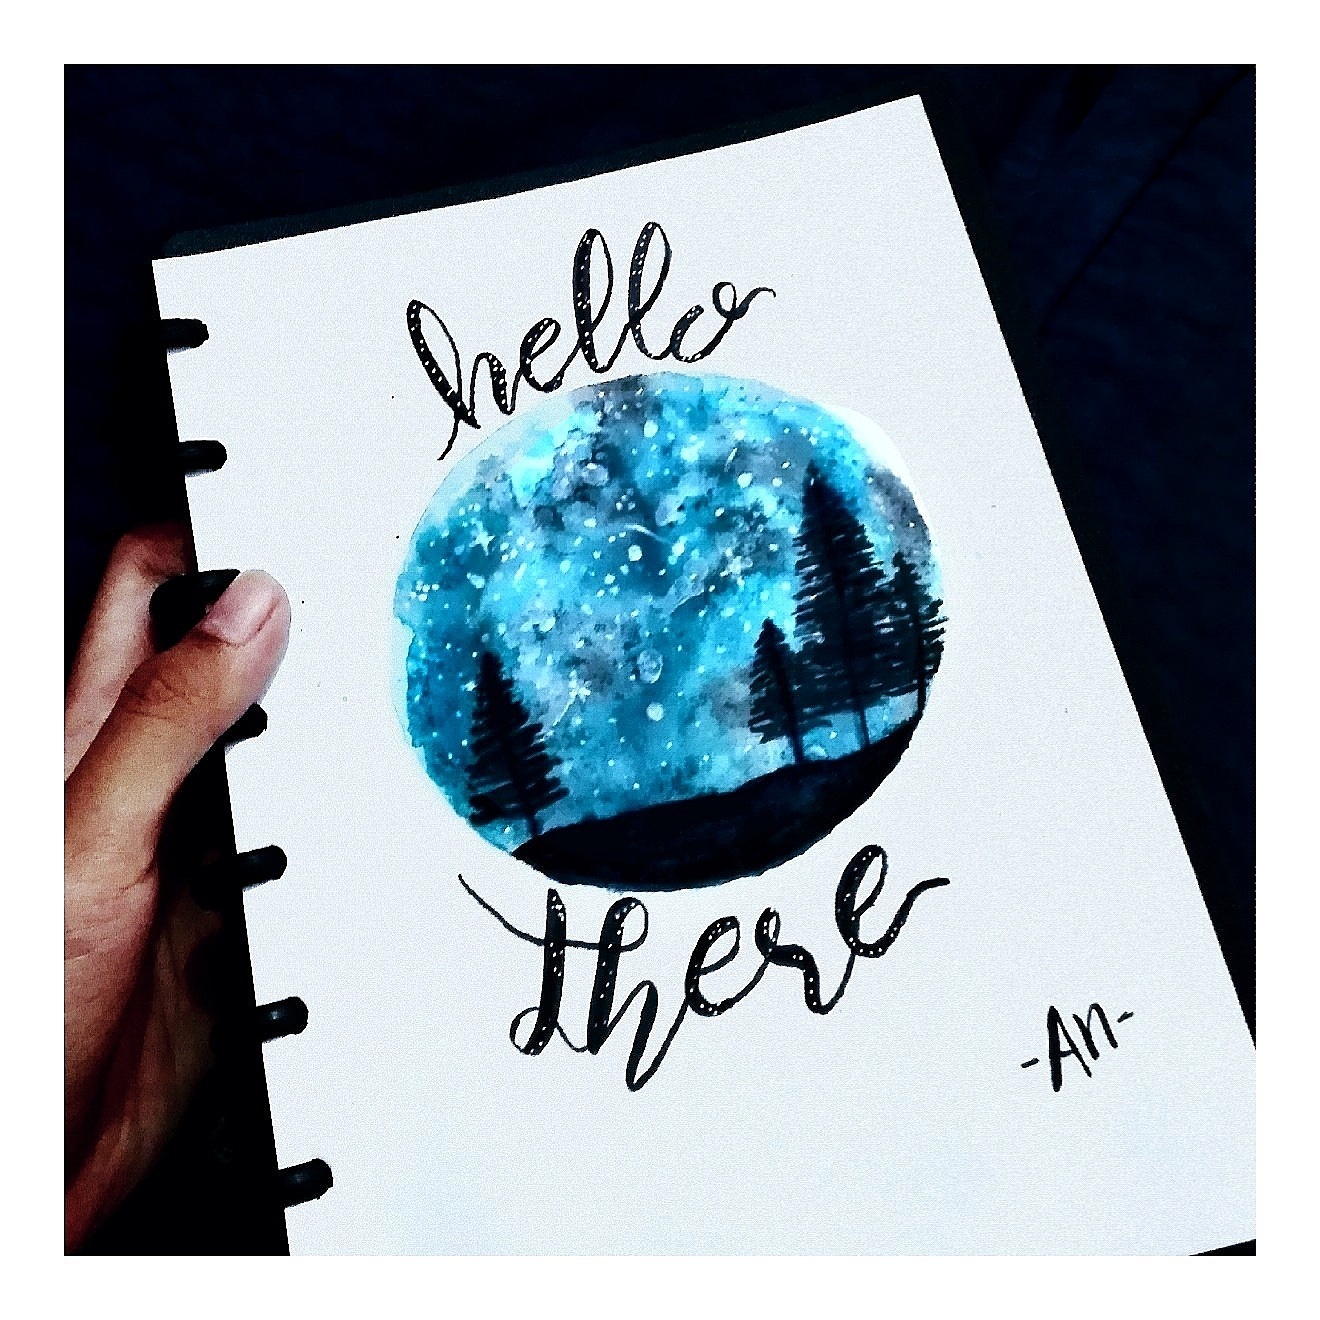 hello
there
-An-